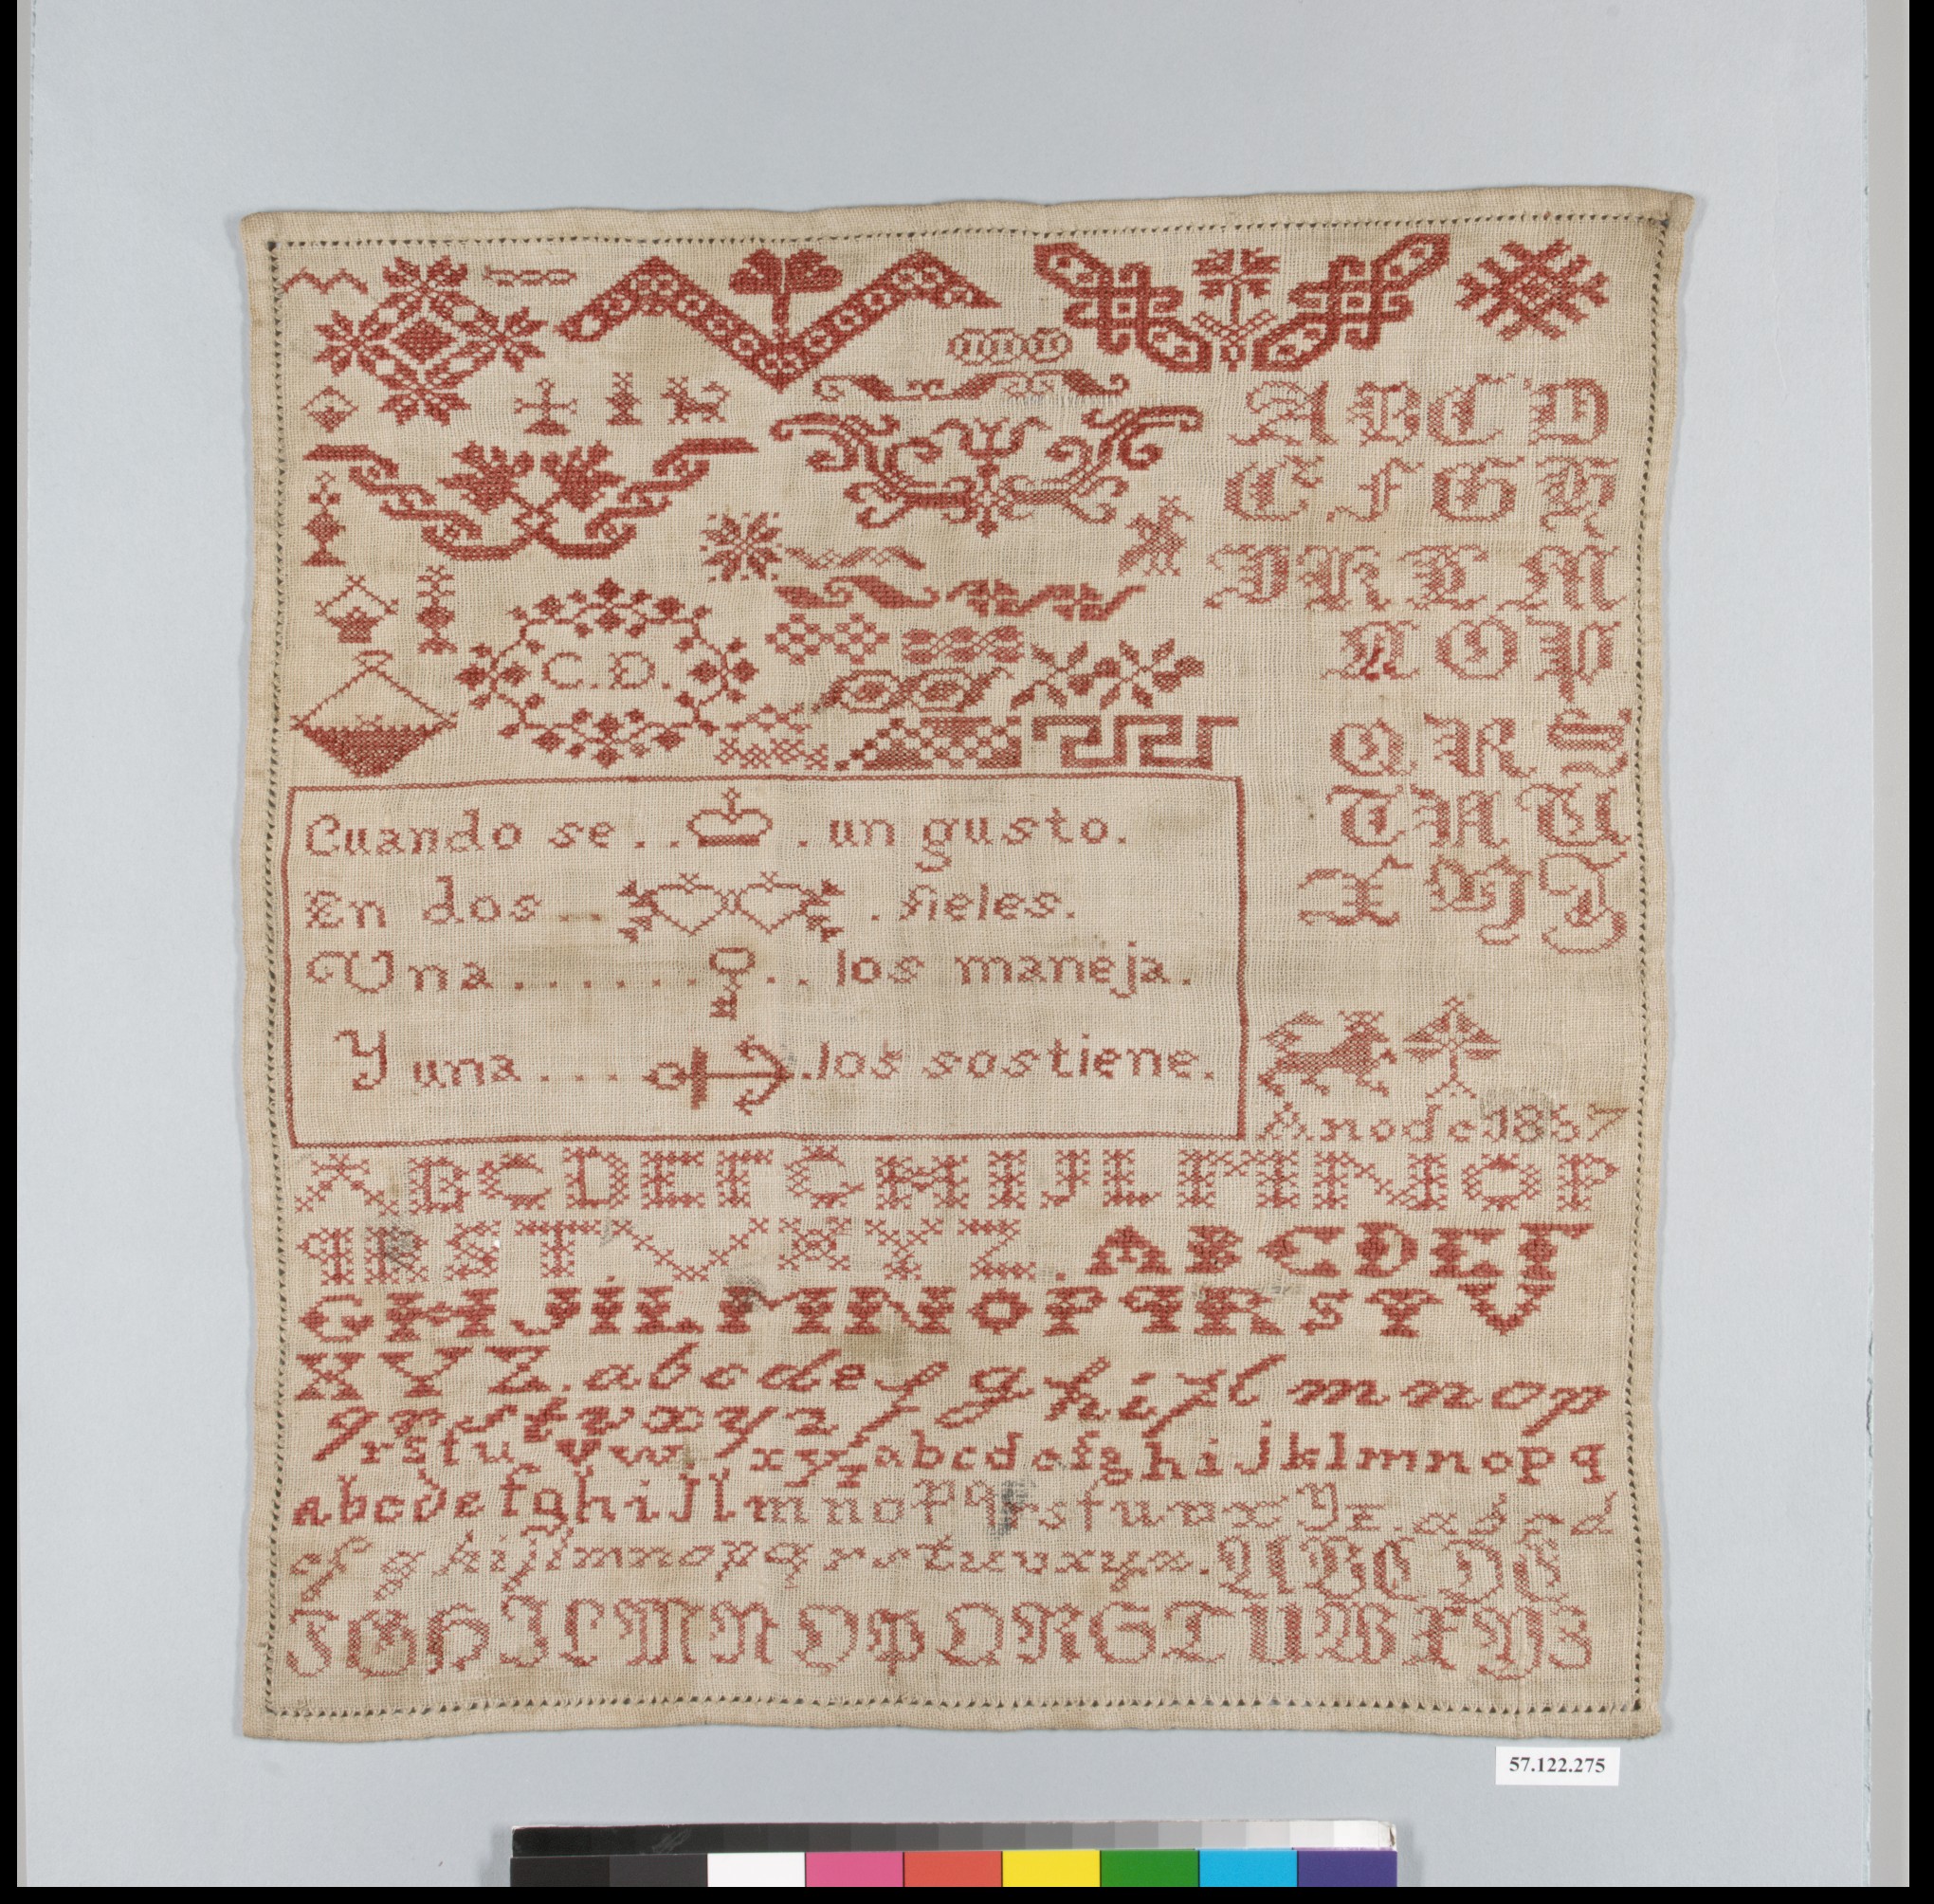 C.D.
A B C D
E F G H
I K L M
N O P
Q R S
T U
X Y Z
Cuando se . . . un gusto.
En dos . . . fieles.
Una . . . . . . . . . los maneja.
Y una . . . . . los sostiene.
Año de 1867
A B C D E F G H I J L M N O P
q R S T V X Y Z . A B C D E F
G H J i L M N O P q R S T V
X Y Z . a b c d e f g h i j l m n o p
q r s t v x y z
r s t u v w x y z a b c d e f g h i j k l m n o p q
a b c d e f g h i j l m n o p q r s t u v x y z . a b c d
e f g h i j l m n o p q r s t u v x y z . A B C D E
F G H I L M N O P Q R S T U V X Y Z
57.122.275